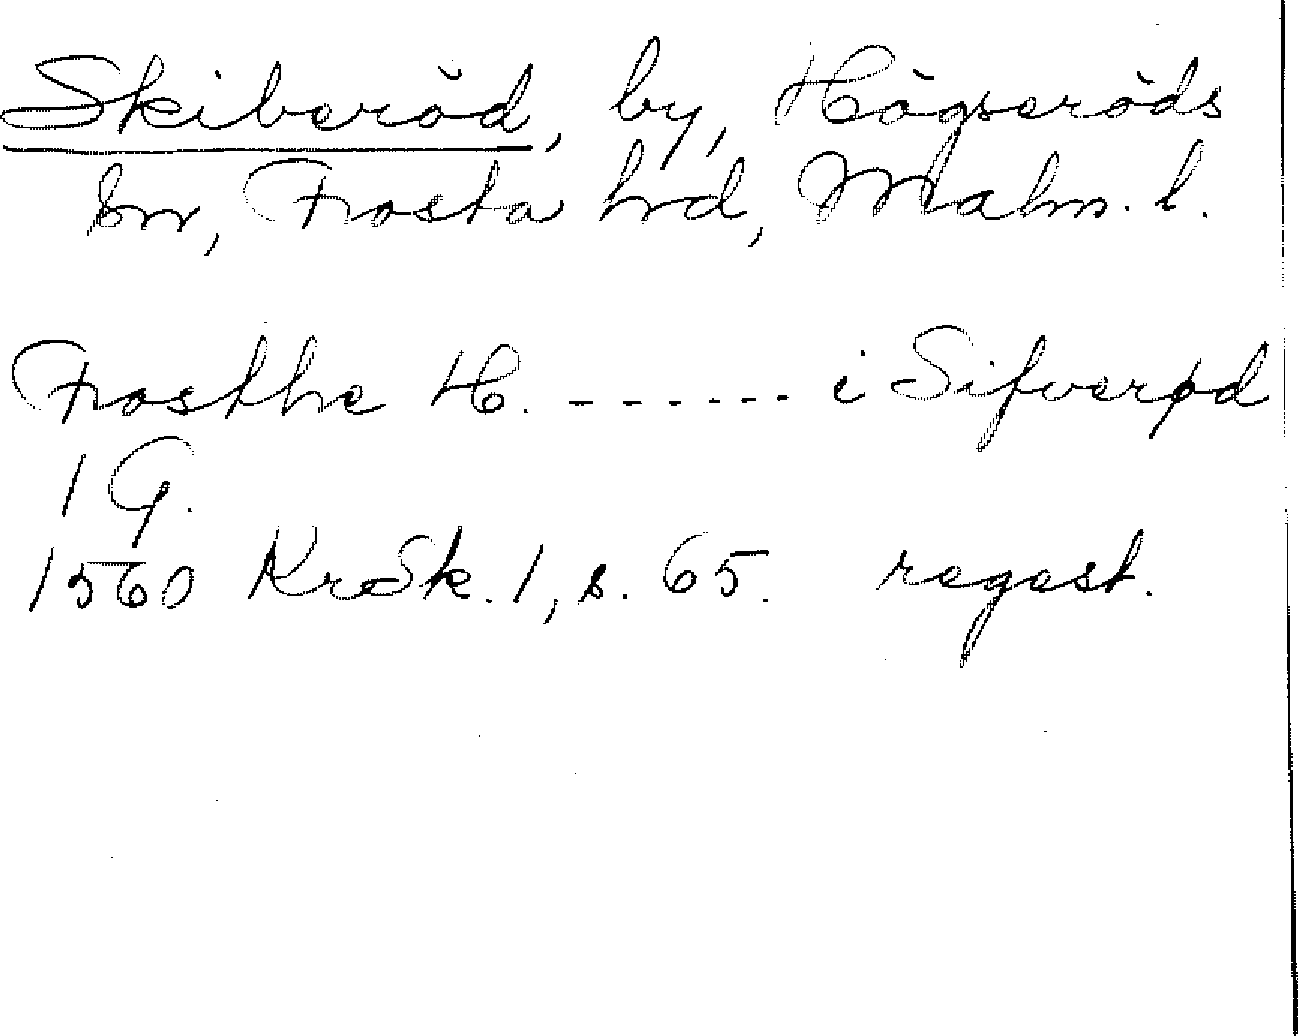 Skiberöd, by, Högseröds
sn, Frosta hrd, Malm. l.
Frosthe H. ------ i Sifverød
1 G.
1560 KrSk. 1, s. 65. regest.